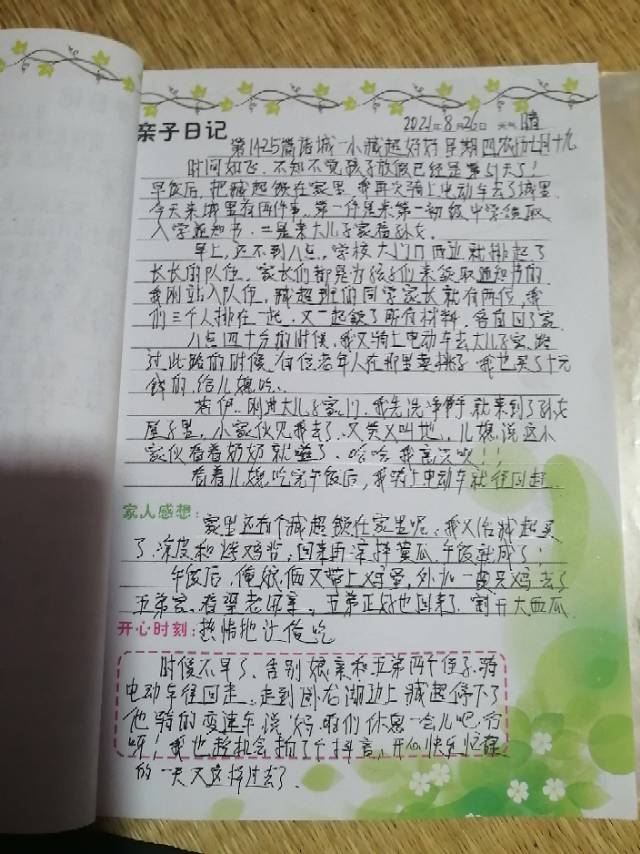 亲子日记
2021年8月26日 天气 晴
第1425篇诸城一小臧超好好星期四农历七月十九
时间如飞,不知不觉孩子放假已经是第51天了!
早饭后,把臧超锁在家里,我再次骑上电动车去了城里
今天来城里有两件事,第一件是来第一初级中学领取
入学通知书,二是来大儿子家看孙女。
早上,还不到八点,学校大门口两边就排起了
长长的队伍,家长们都是为孩子们来领取通知书的
我刚站入队伍,臧超班的同学家长就有两位,我
们三个人排在一起,又一起领了所有材料,各自回了家
八点四十分的时候,我又骑上电动车去大儿子家,路
过此路的时候,有位老年人在那里卖桃子,我也买了十元
钱的,给儿媳吃。
刚进大儿子家门,我先洗净手就来到了孙女
屋子里,小家伙见我去了,又笑又叫地,儿媳说这小
家伙看着奶奶就啦了,哈哈,我喜欢!!
看着儿媳吃完午饭后,我骑上电动车就往回赶
家人感想:
家里还有个臧超锁在家里呢,我又给臧超买
了凉皮和烤鸡背,回来再凉拌黄瓜,午饭就成了!
午饭后,俺娘俩又带上鸡蛋,外加一只鸡去了
五弟家,看望老母亲,五弟正好也回来了,割开大西瓜
开心时刻:
热情地让俺吃
时候不早了,告别娘亲和五弟两个侄子,骑
电动车往回走,走到卧龙湖边上,臧超停下了
他骑的变速车,说:妈,咱们休息一会儿吧,行
呀!我也趁机会拍了个抖音,开心快乐忙碌
的一天又这样过去了.